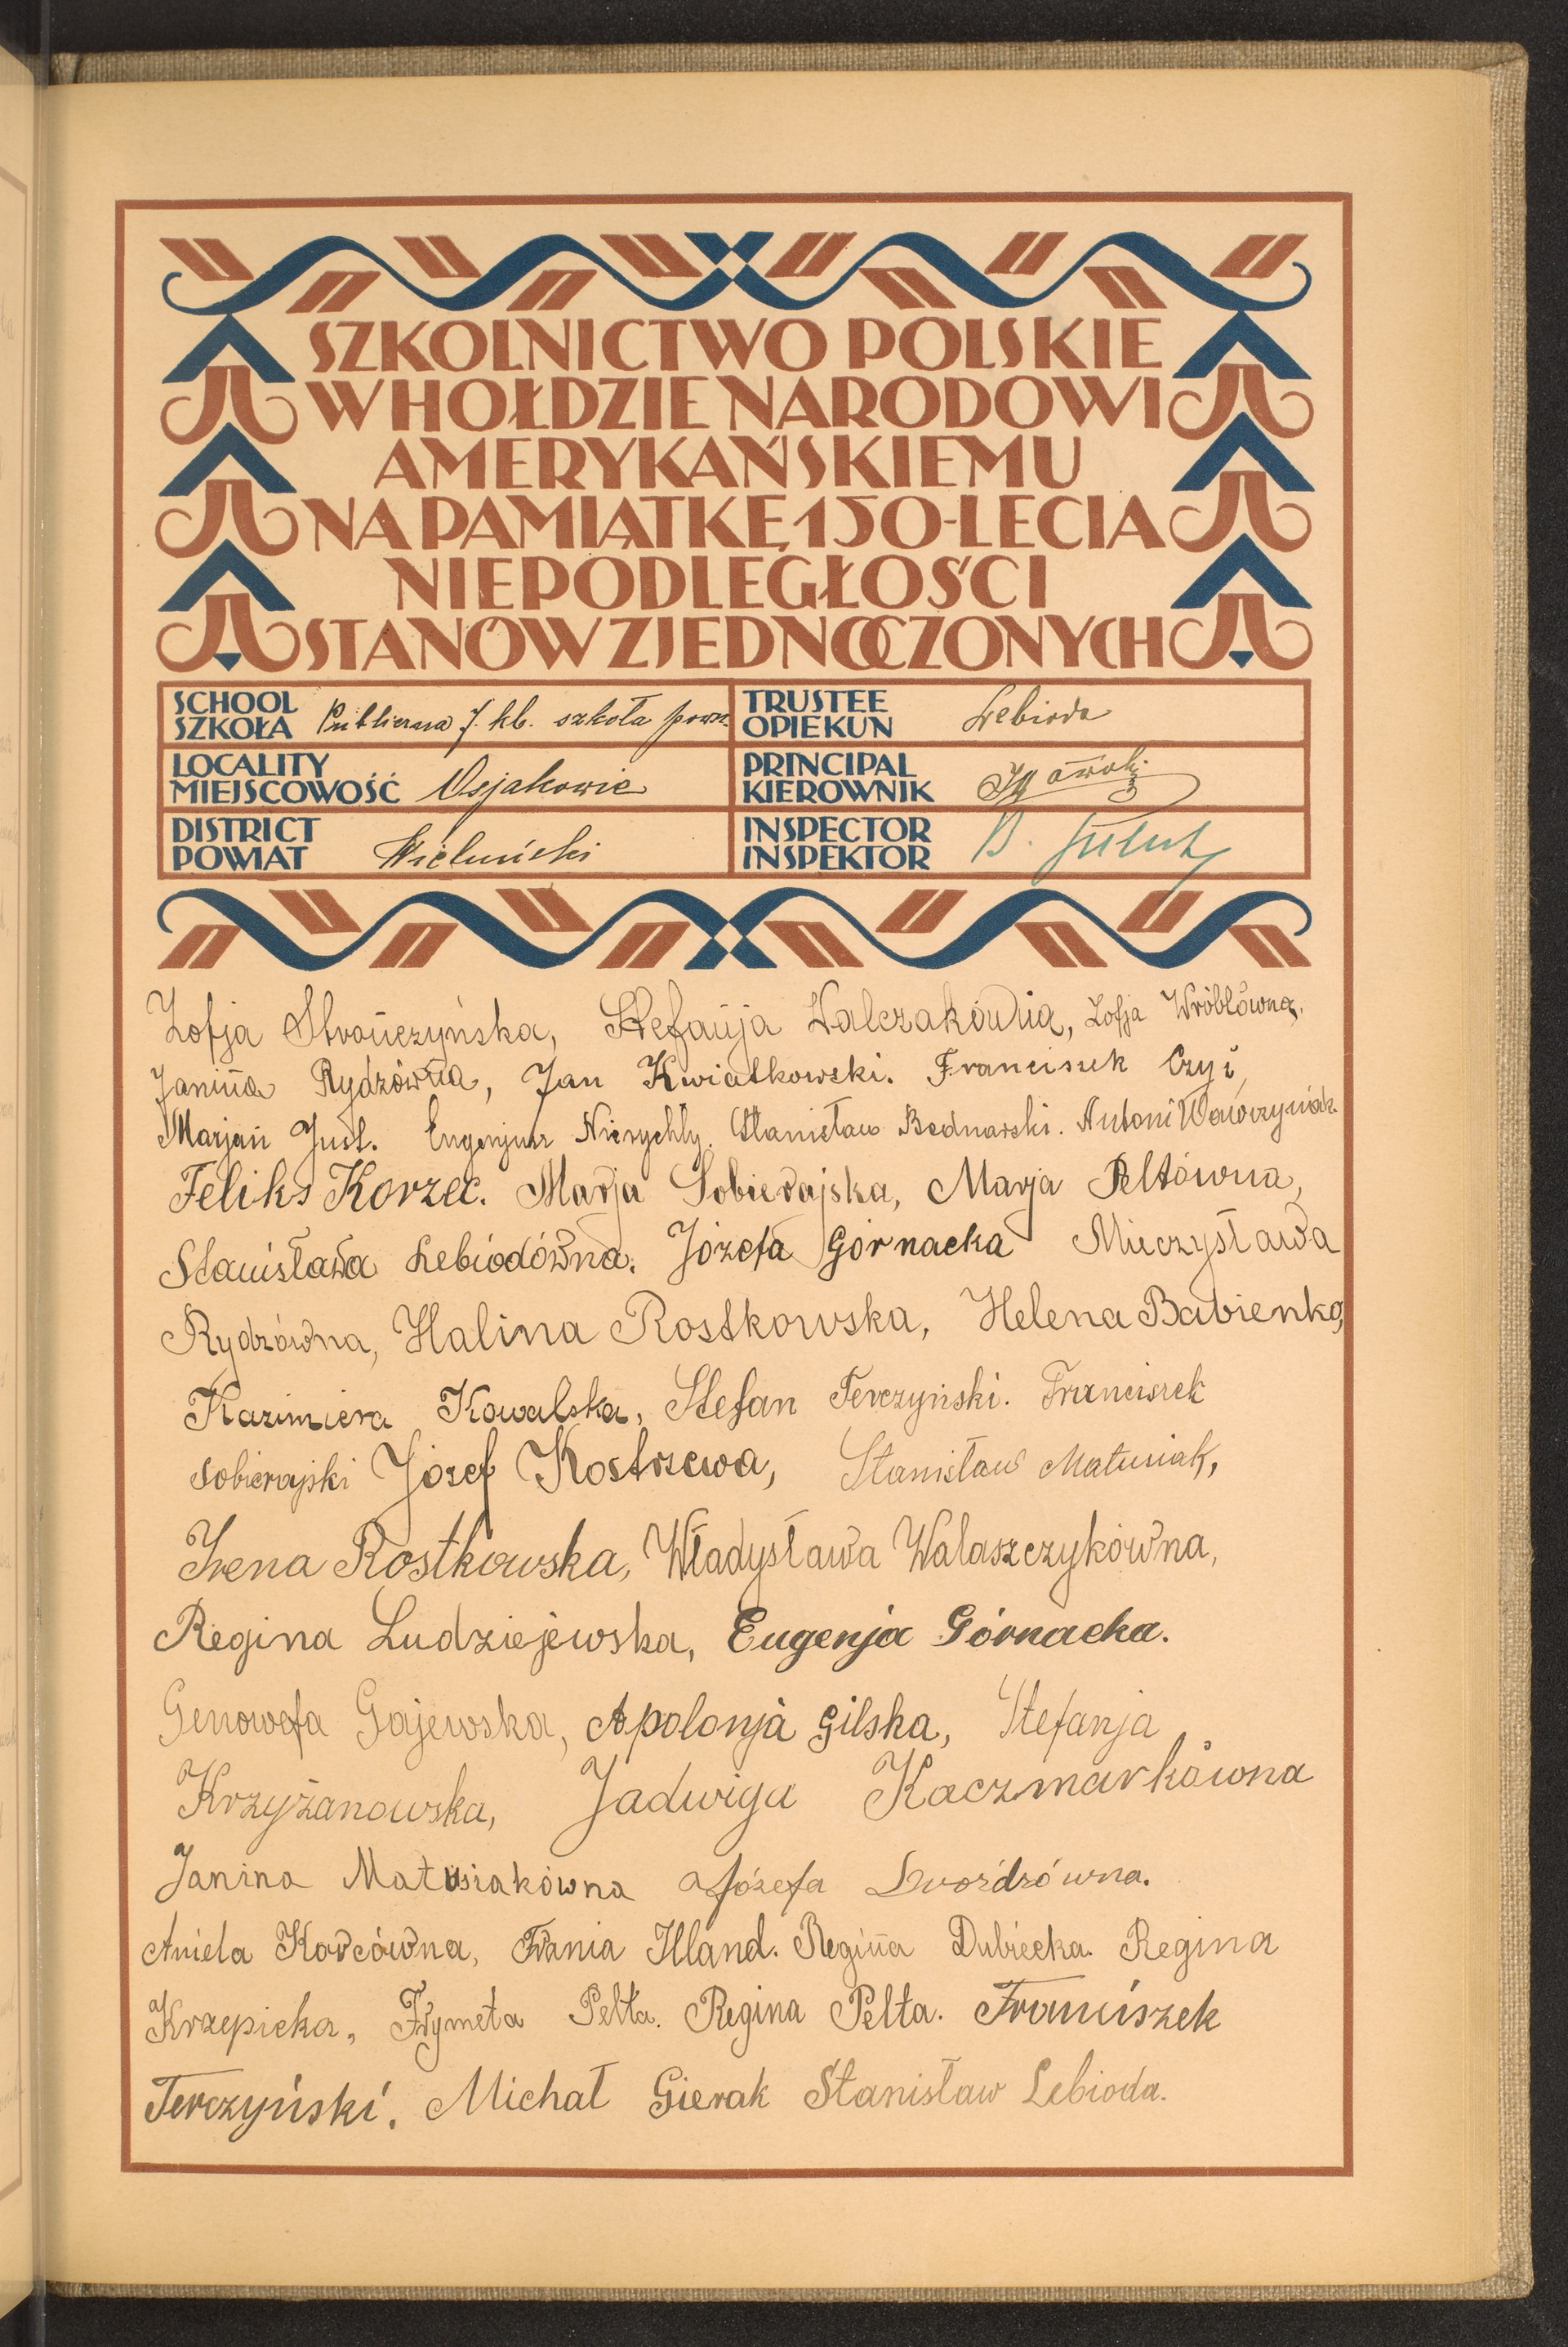 SZKOLNICTWO POLSKIE
W HOŁDZIE NARODOWI
AMERYKAŃSKIEMU
NA PAMIĄTKĘ 150-LECIA
NIEPODLEGŁOŚCI
STANÓW ZJEDNOCZONYCH
SCHOOL
SZKOŁA Publiczna 7. kl. szkoła pow.
TRUSTEE
OPIEKUN Lebioda
LOCALITY
MIEJSCOWOŚĆ Osjakowie
PRINCIPAL
KIEROWNIK
DISTRICT
POWIAT Wieluński
INSPECTOR
INSPEKTOR B.
Zofja Strończyńska, Stefanja Walczakówna, Zofja Wróblówna,
Janina Rydzówna, Jan Kwiatkowski. Franciszek Czyż,
Marjan Just. Eugenjusz Niezychły. Stanisław Bednarski. Antoni Wawrzyniak.
Feliks Korzec. Marja Sobierajska, Marja Peltówna,
Stanisława Lebiodówna. Józefa Górnacka Mieczysława
Rydzówna, Halina Rostkowska, Helena Babienko,
Kazimiera Kowalska, Stefan Terczyński. Franciszek
Sobierajski Józef Kostrzewa, Stanisław Matusiak,
Irena Rostkowska, Władysława Walaszczykówna,
Regina Ludziejewska, Eugenja Górnacka.
Genowefa Gajewska, Apolonja Gilska, Stefanja
Krzyżanowska, Jadwiga Kaczmarkówna
Janina Matusiakówna Józefa
Aniela Korcówna, Frania Illand. Regina Dubiecka. Regina
Krzepicka, Frymeta Pelta. Regina Pelta. Franciszek
Terczyński. Michał Gierak Stanisław Lebioda.